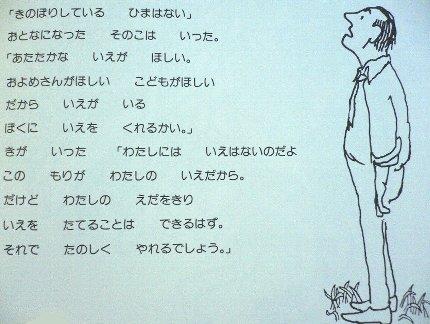 「きのぼりしている　ひまはない」
おとなになった　そのこは　いった。
「あたたかな　いえが　ほしい。
およめさんがほしい　こどもがほしい
だから　いえが　いる
ぼくに　いえを　くれるかい。」
きが　いった　「わたしには　いえはないのだよ
この　もりが　わたしの　いえだから。
だけど　わたしの　えだをきり
いえを　たてることは　できるはず。
それで　たのしく　やれるでしょう。」